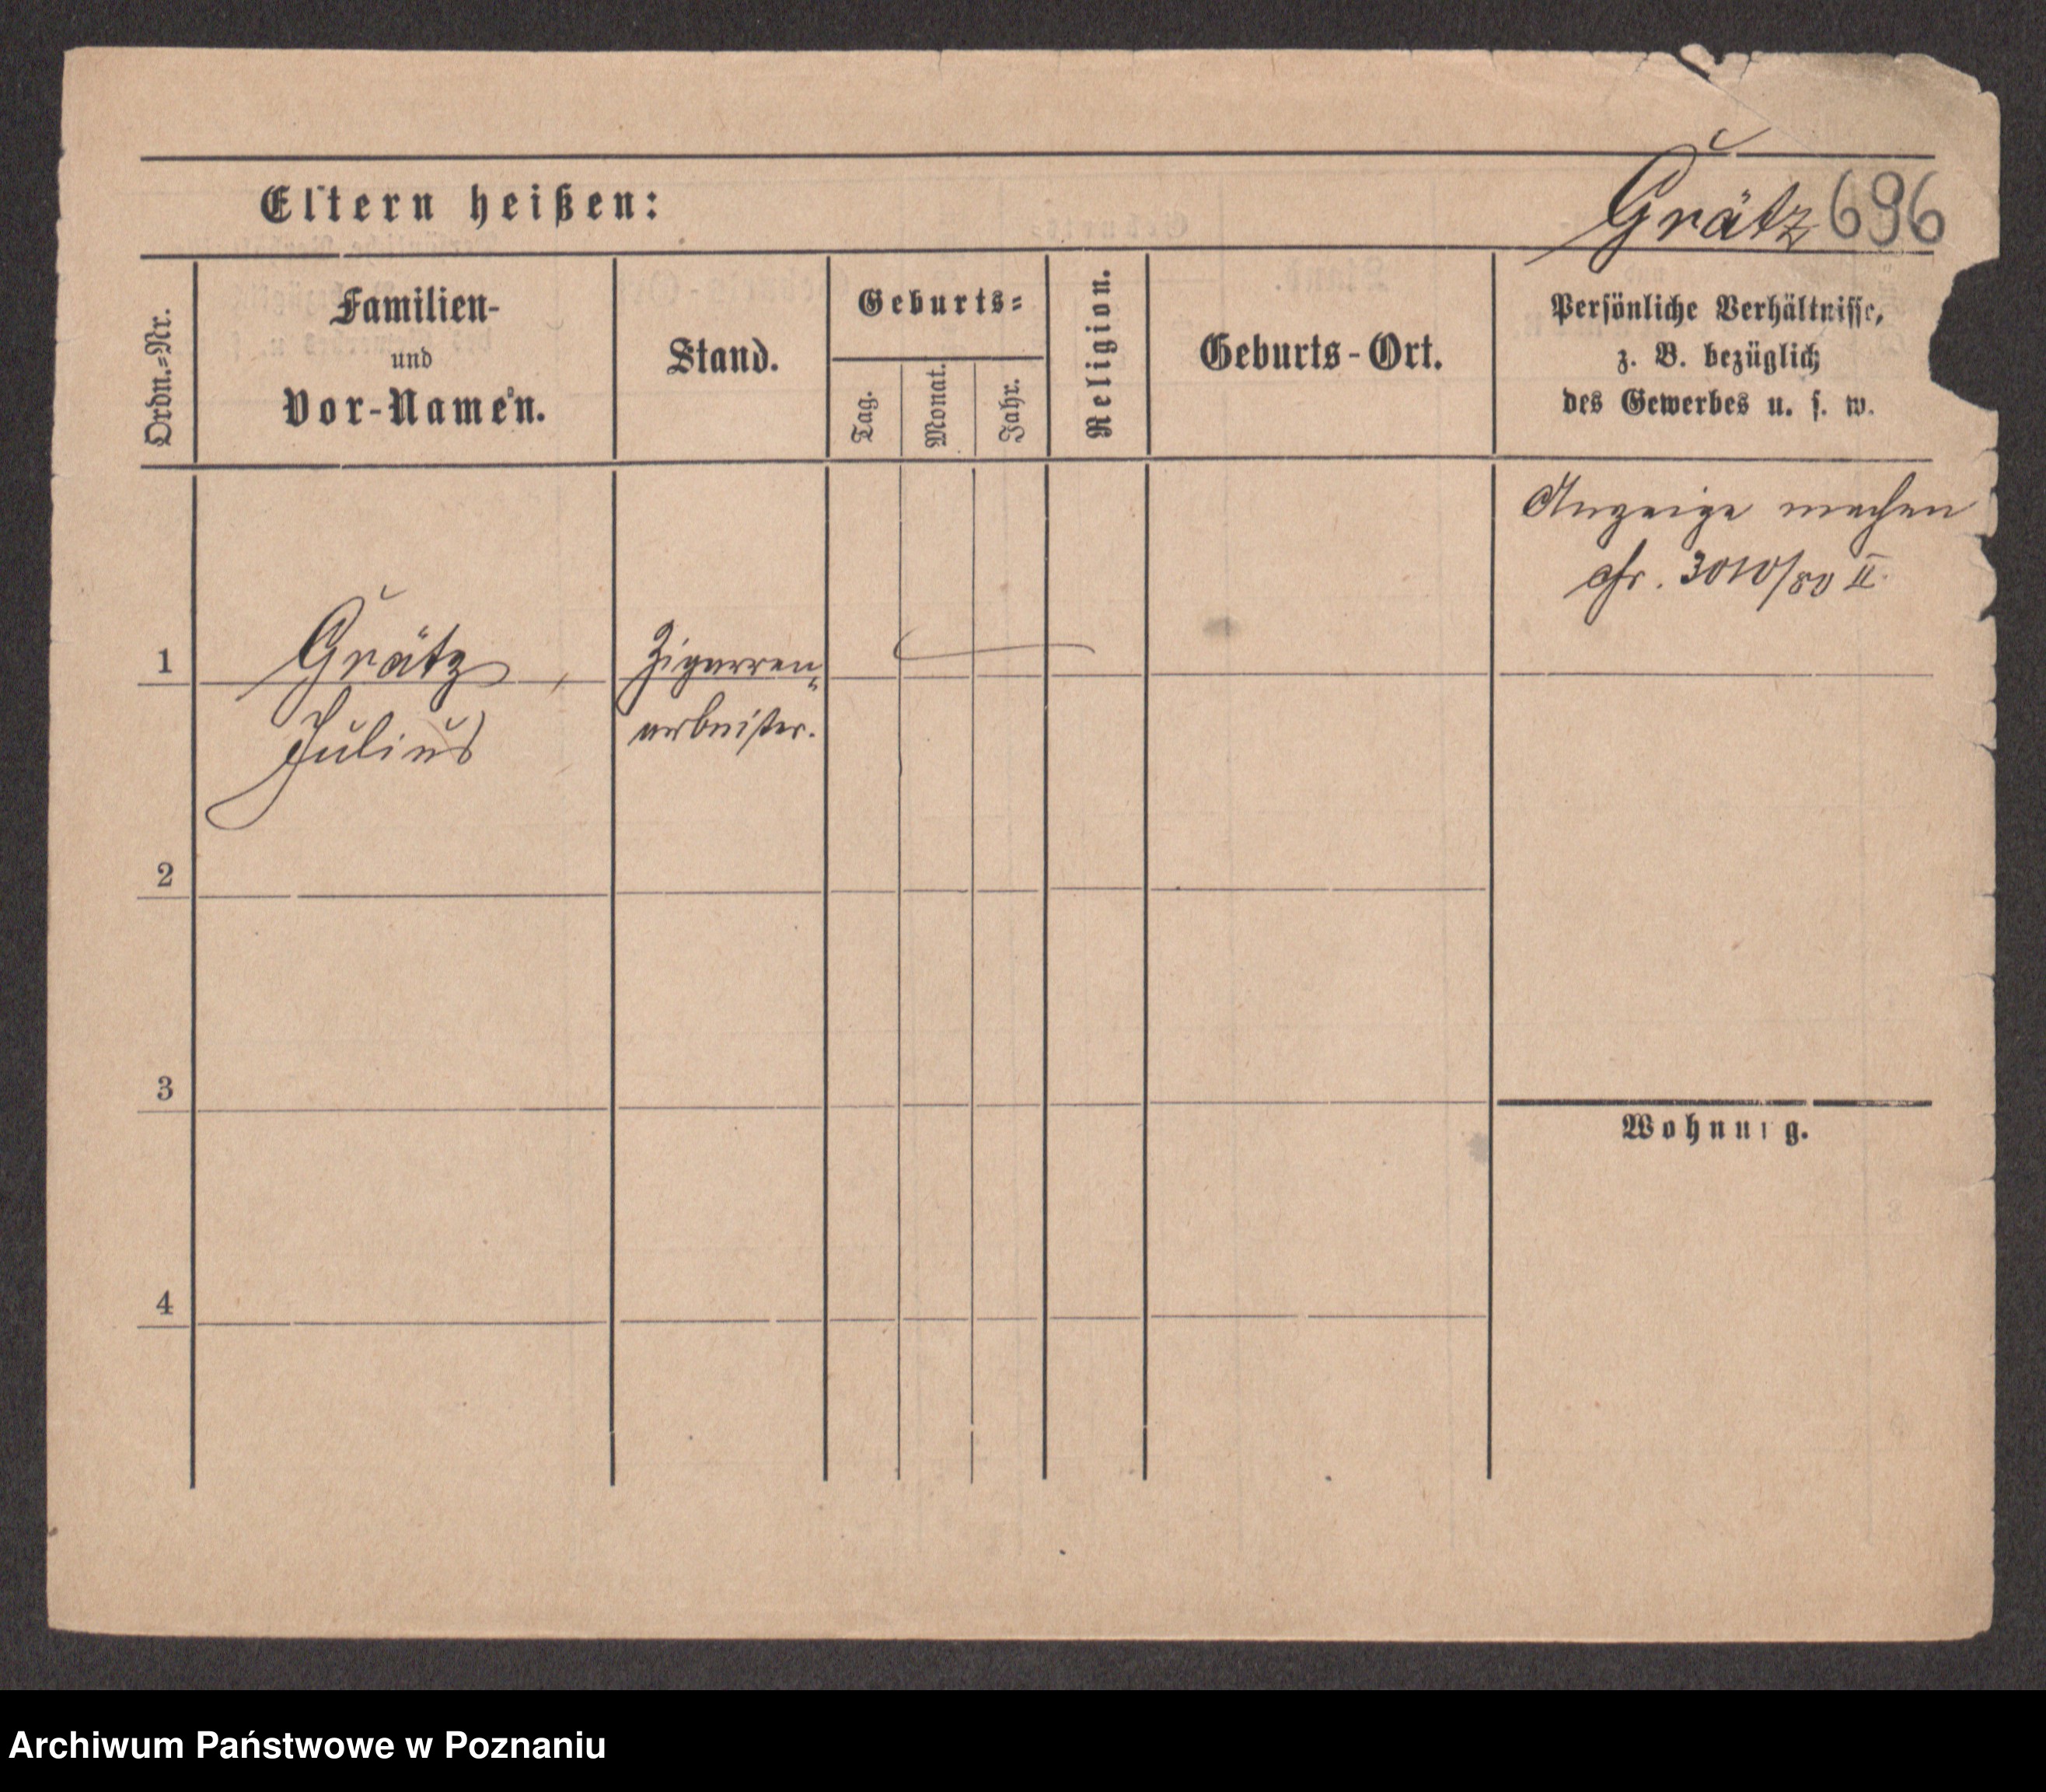 Eltern heißen:
Grätz 696
Ordn.=Nr.
Familien-
und
Vor-Namen.
Stand.
Geburts=
Tag.
Monat.
Jahr.
Religion.
Geburts-Ort.
Persönliche Verhältnisse,
z. B. bezüglich
des Gewerbes u. s. w.
Anzeige machen
cfr. 3010/80 II.
1
Grätz,
Julius
Zigarren„
arbeiter.
2
3
Wohnung.
4
Archiwum Państwowe w Poznaniu